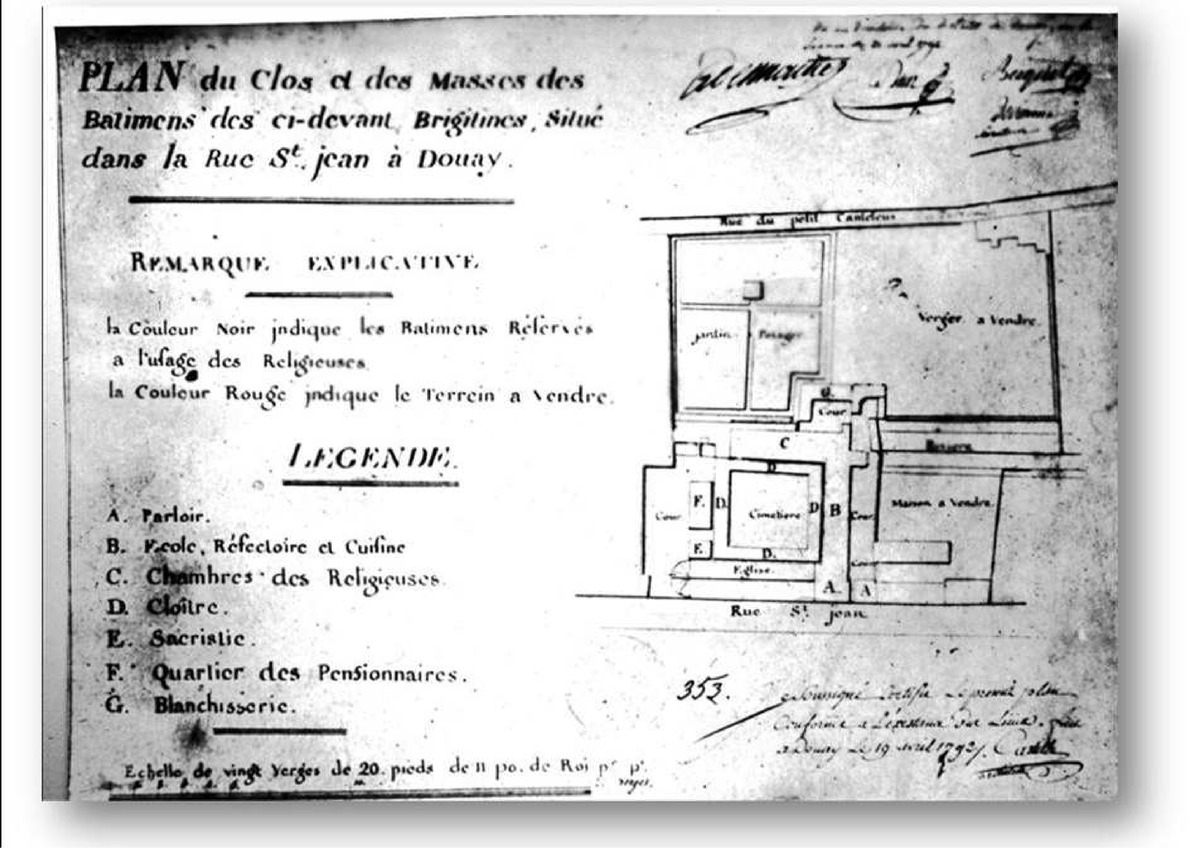 PLAN du Clos et des Masses des
Batimens des ci-devant Brigitines, Situé
dans la Rue St. jean à Douay.
REMARQUE EXPLICATIVE
la Couleur Noir jndique les Batimens Réservés
a l'usage des Religieuses.
la Couleur Rouge jndique le Terrein a Vendre.
LEGENDE.
A. Parloir.
B. Ecole, Réfectoire et Cuisine
C. Chambres des Religieuses.
D. Cloître.
E. Sacristie.
F. Quartier des Pensionnaires.
G. Blanchisserie.
Echelle de vingt Verges de 20. pieds de 11 po. de Roi pr. pr.
Rue du petit Canteleux
jardin Potager
Verger a Vendre.
G.
Cour
C
D
F. D. Cimetiere D B Cour
Maison a Vendre.
Cour
E. D.
Eglise. Cour
A. A
Rue St. jean
353.
Soussigné Certifie le present plan
Conforme a l'existence des Lieux.
a Douay le 19 avril 1792.